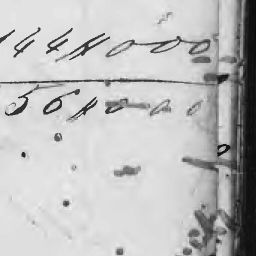 144$000
56$000